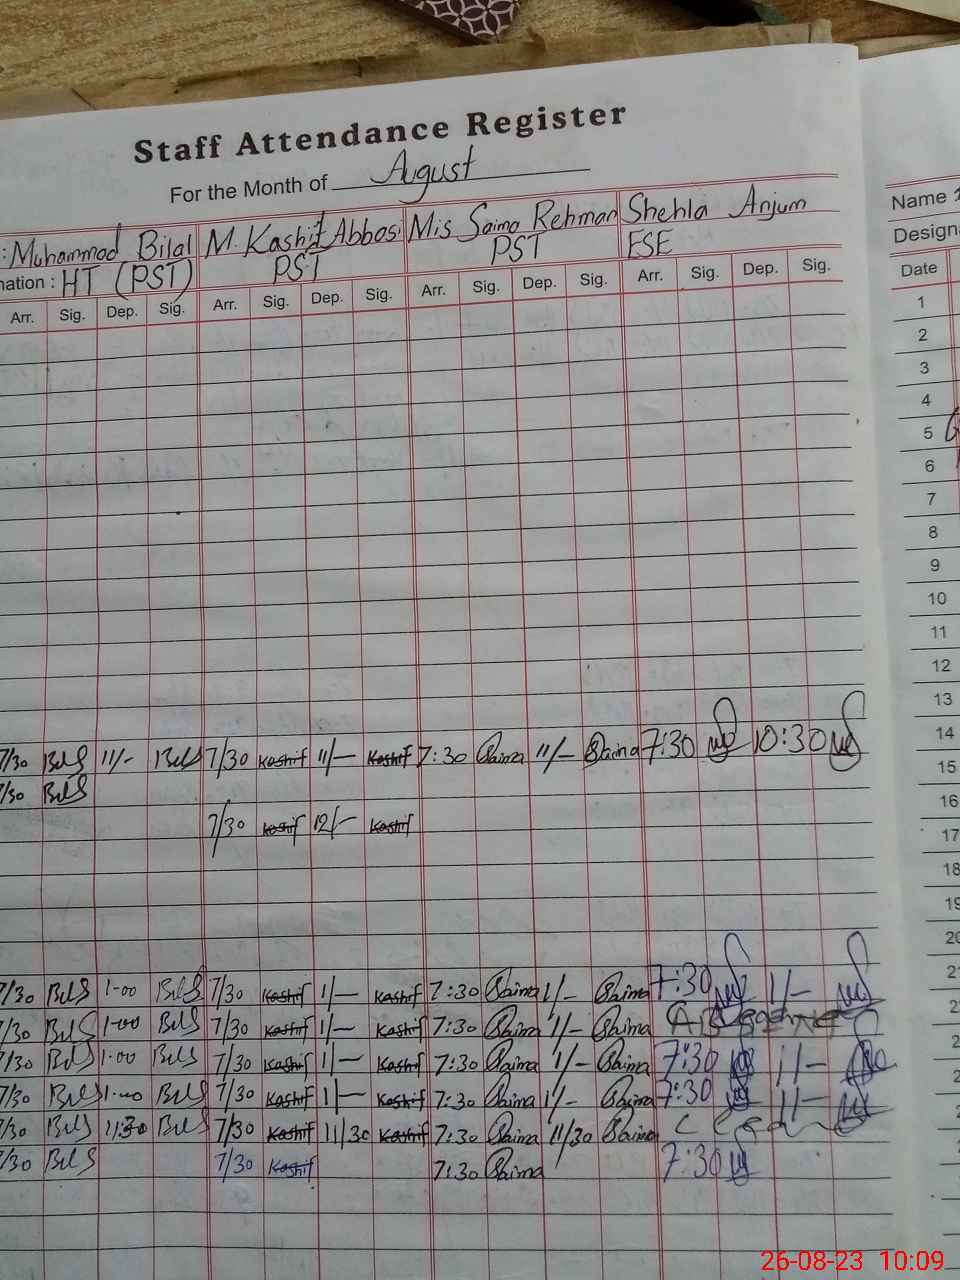 Staff Attendance Register
For the Month of August
: Muhammad Bilal M. Kashif Abbasi Mis Saima Rehman Shehla Anjum
nation : HT (PST) PST PST ESE
Arr. Sig. Dep. Sig. Arr. Sig. Dep. Sig. Arr. Sig. Dep. Sig. Arr. Sig. Dep. Sig.
7/30 11/- 7/30 Kashif 11/- Kashif 7:30 Saima 11/- Saima 7:30 10:30
7/30
7/30 Kashif 12/- Kashif
7/30 1-00 7/30 Kashif 1/- Kashif 7:30 Saima 1/- Saima 7:30 1/-
7/30 1-00 7/30 Kashif 1/- Kashif 7:30 Saima 1/- Saima
7/30 1-00 7/30 Kashif 1/- Kashif 7:30 Saima 1/- Saima 7:30 1/-
7/30 1-00 7/30 Kashif 1/- Kashif 7:30 Saima 1/- Saima 7:30 1/-
7/30 11:30 7/30 Kashif 11/30 Kashif 7:30 Saima 11/30 Saima
7/30 7/30 Kashif 7:30 Saima 7:30
Name
Design
Date
1
2
3
4
5
6
7
8
9
10
11
12
13
14
15
16
17
18
19
20
26-08-23 10:09